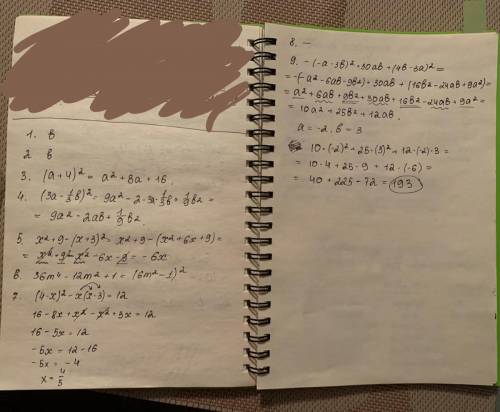 1. в
2 в
3. (a+4)² = a² + 8a + 16
4. (3a - ⅓b)² = 9a² - 2·3a·⅓b + ⅑b² =
= 9a² - 2ab + ⅑b².
5. x² + 9 - (x+3)² = x² + 9 - (x² + 6x + 9) =
= x² + 9 - x² - 6x - 9 = - 6x
6. 36m⁴ - 12m² + 1 = (6m² - 1)²
7 (4-x)² - x(x-3) = 12
16 - 8x + x² - x² + 3x = 12
16 - 5x = 12
-5x = 12 - 16
-5x = -4
x = 4/5
8. —
9. -(-a-3b)² + 30ab + (4b-3a)² =
= -(-a² - 6ab - 9b²) + 30ab + (16b² - 24ab + 9a²) =
= a² + 6ab + 9b² + 30ab + 16b² - 24ab + 9a² =
= 10a² + 25b² + 12ab.
a = -2, b = 3
10·(-2)² + 25·(3)² + 12·(-2)·3 =
= 10·4 + 25·9 + 12·(-6) =
= 40 + 225 - 72 = 193